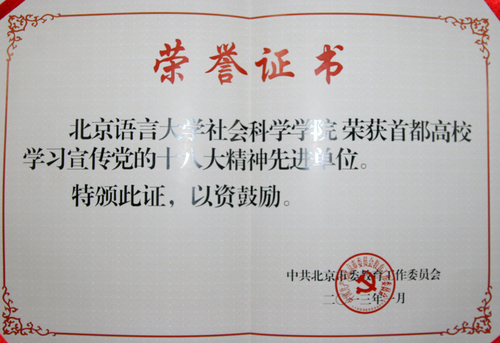 荣誉证书
北京语言大学社会科学学院 荣获首都高校
学习宣传党的十八大精神先进单位。
特颁此证，以资鼓励。
中共北京市委教育工作委员会
二〇一三年一月